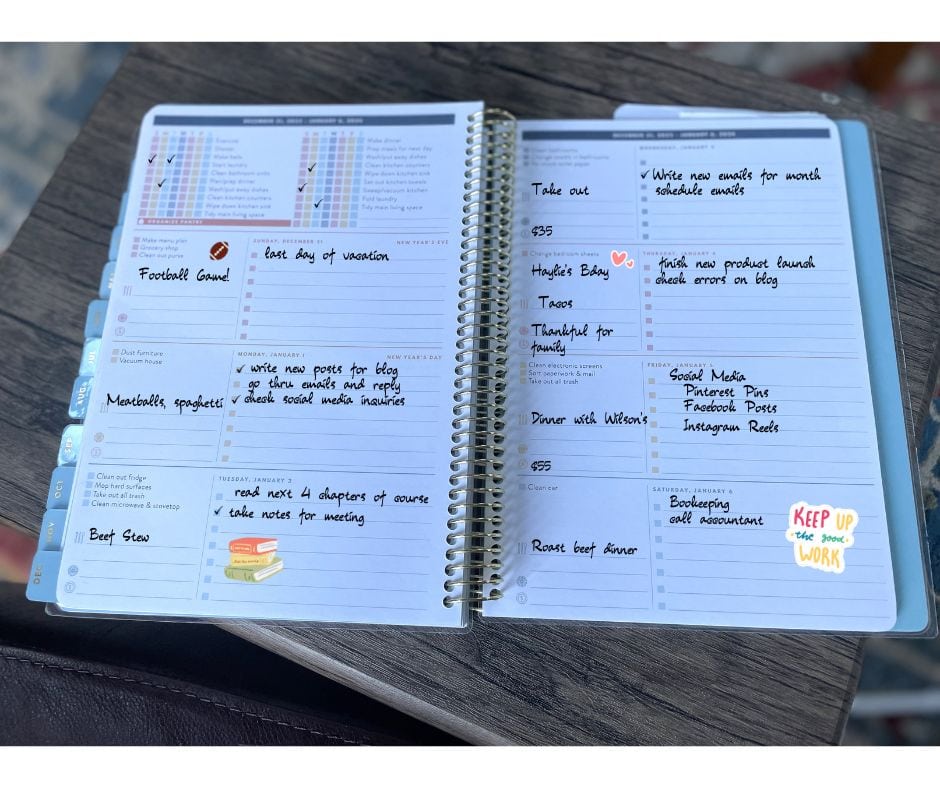 DECEMBER 31, 2023 - JANUARY 6, 2024
S M T W T F S
Exercise
Shower
Make beds
Start laundry
Clean bathroom sinks
Plan/prep dinner
Wash/put away dishes
Clean kitchen counters
Wipe down kitchen sink
Tidy main living space
Make dinner
Prep meals for next day
Wash/put away dishes
Clean kitchen counters
Wipe down kitchen sink
Set out kitchen towels
Sweep/vacuum kitchen
Fold laundry
Tidy main living space
ORGANIZE PANTRY
Make menu plan
Grocery shop
Clean out purse
Football Game!
SUNDAY, DECEMBER 31
NEW YEAR'S EVE
last day of vacation
Dust furniture
Vacuum house
Meatballs, spaghetti
MONDAY, JANUARY 1
NEW YEAR'S DAY
write new posts for blog
go thru emails and reply
check social media inquiries
Clean out fridge
Mop hard surfaces
Take out all trash
Clean microwave & stovetop
Beef Stew
TUESDAY, JANUARY 2
read next 4 chapters of course
take notes for meeting
SEP
OCT
NOV
DEC
DECEMBER 31, 2023 - JANUARY 6, 2024
Clean bathrooms
Change towels in bathrooms
Take out
$35
WEDNESDAY, JANUARY 3
Write new emails for month
schedule emails
Change bedroom sheets
Haylie's Bday
Tacos
Thankful for
family
THURSDAY, JANUARY 4
finish new product launch
check errors on blog
Clean electronic screens
Sort paperwork & mail
Take out all trash
Dinner with Wilson's
$55
FRIDAY, JANUARY 5
Social Media
Pinterest Pins
Facebook Posts
Instagram Reels
Clean car
Roast beef dinner
SATURDAY, JANUARY 6
Bookeeping
call accountant
KEEP UP
the good
WORK